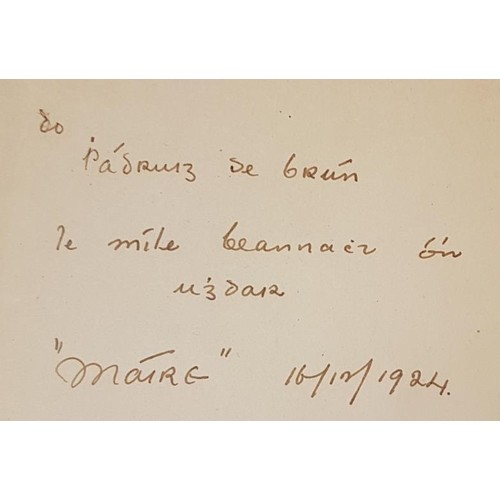 do
Ṗádruig de Brún
le míle beannaċt ón
uġdar
"Máire" 16/12/1924.